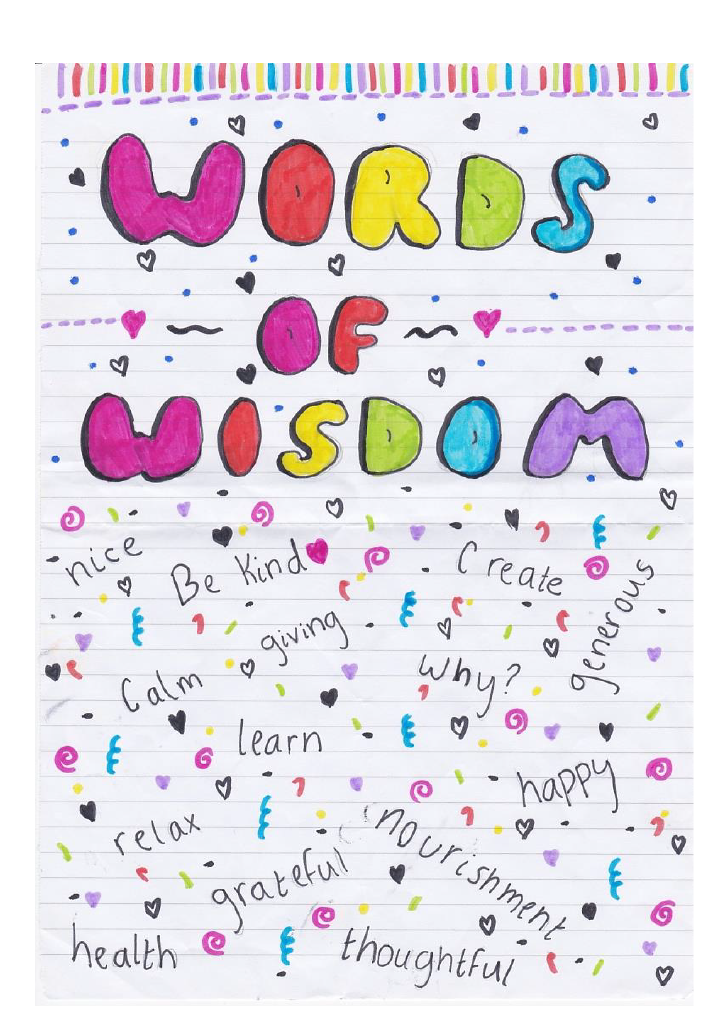 WORDS
OF
WISDOM
nice
Be Kind
Create
generous
giving
Calm
Why?
learn
happy
relax
nourishment
grateful
health
thoughtful